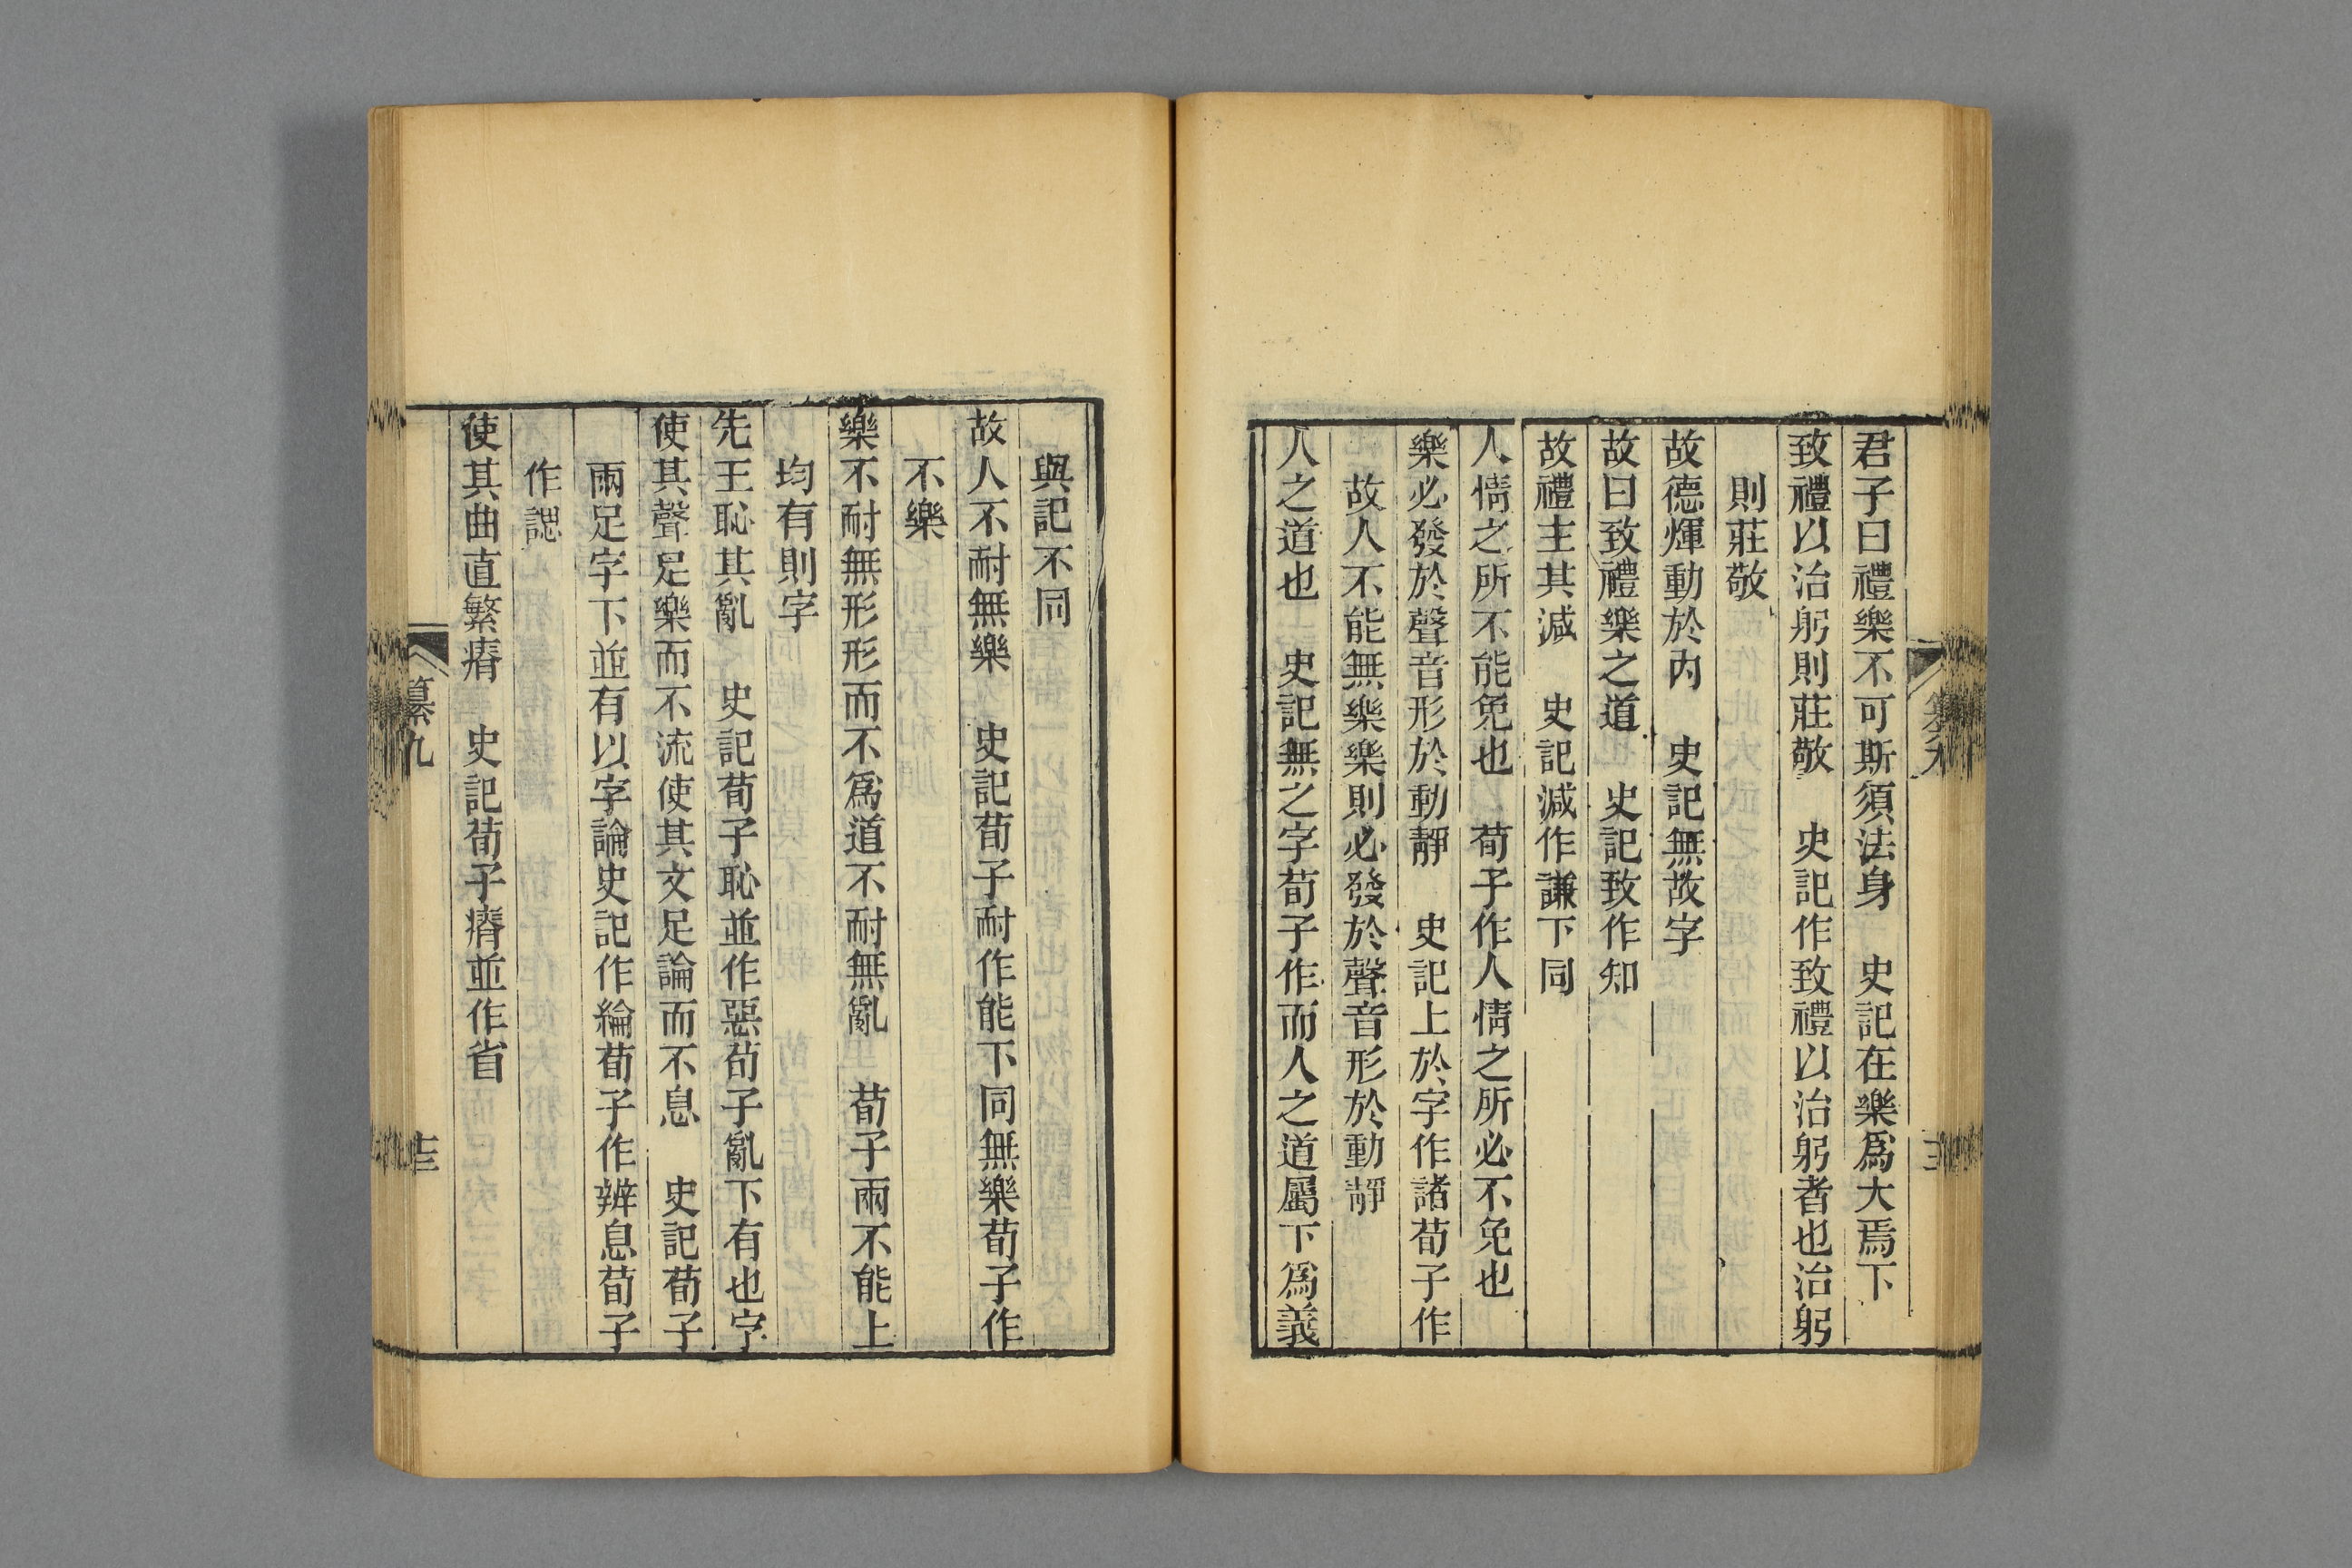 君子曰禮樂不可斯須法身　史記在樂爲大焉下
致禮以治躬則莊敬　史記作致禮以治躬者也治躬
則莊敬
故德煇動於內　史記無故字
故曰致禮樂之道　史記致作知
故禮主其減　史記減作謙下同
人情之所不能免也　荀子作人情之所必不免也
樂必發於聲音形於動靜　史記上於字作諸荀子作
故人不能無樂樂則必發於聲音形於動靜
人之道也　史記無之字荀子作而人之道屬下爲義
與記不同
故人不耐無樂　史記荀子耐作能下同無樂荀子作
不樂
樂不耐無形形而不爲道不耐無亂　荀子兩不能上
均有則字
先王恥其亂　史記荀子恥並作惡荀子亂下有也字
使其聲足樂而不流使其文足論而不息　史記荀子
兩足字下並有以字論史記作綸荀子作辨息荀子
作諰
使其曲直繁瘠　史記荀子瘠並作省
纂九